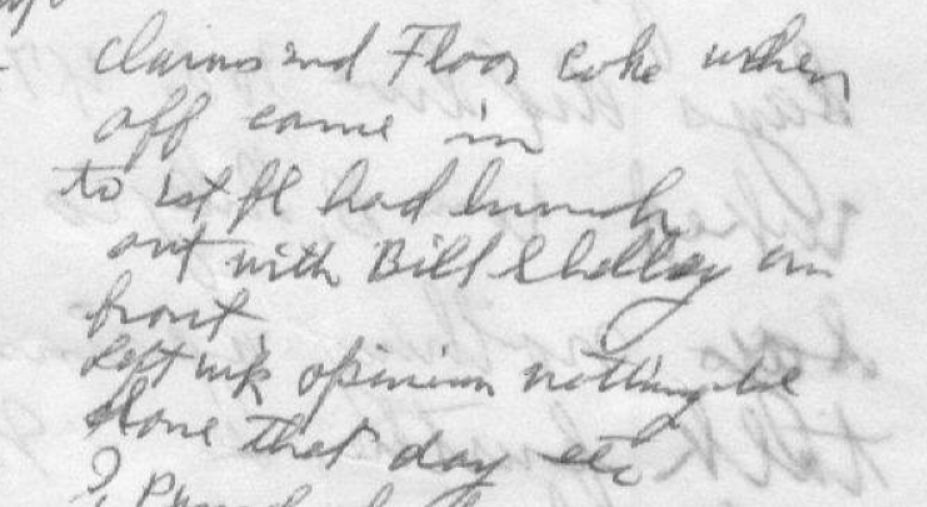 claims 2nd Floor Coke when
off came in
to 1st fl had lunch
out with Bill Shelley in
front
left wk opinion nothing be
done that day etc
?